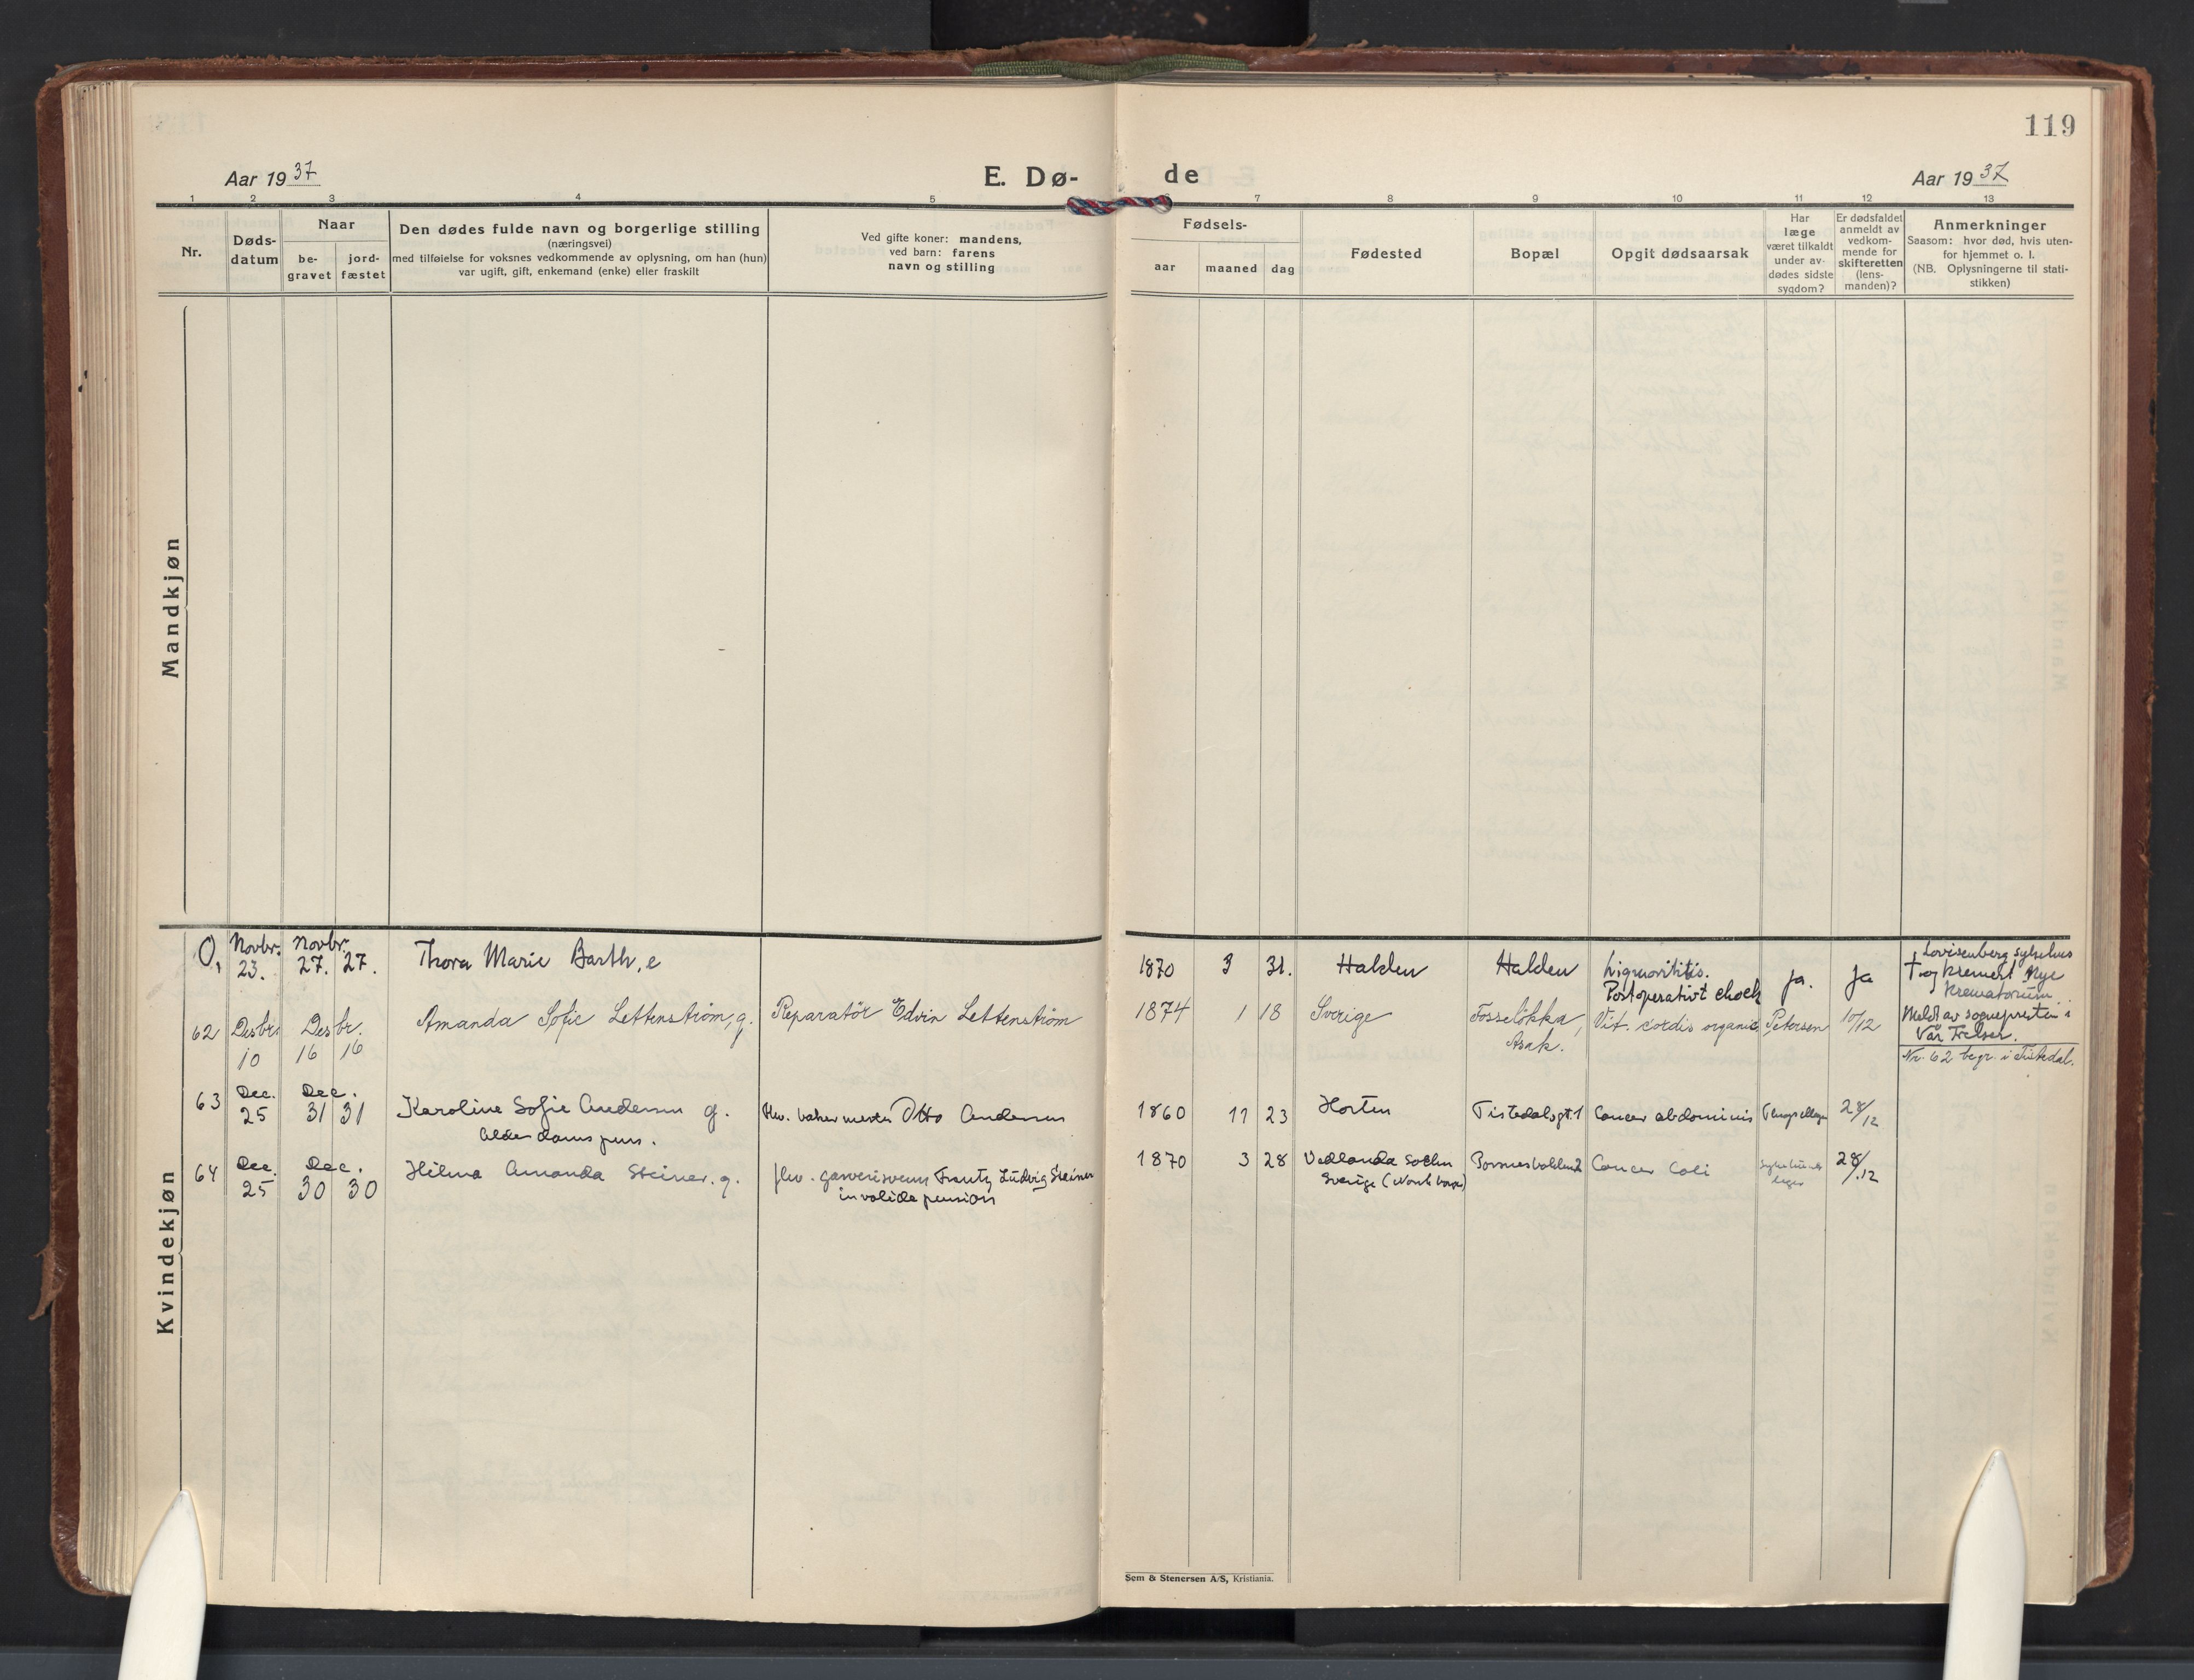 119
Aar 1937
E. Dø-
de
Aar 1937
1 2 3 4 5 7 8 9 10 11 12 13
Nr.
Døds-
datum
Naar
be-
gravet
jord-
fæstet
Den dødes fulde navn og borgerlige stilling
(næringsvei)
med tilføielse for voksnes vedkommende av oplysning, om han (hun)
var ugift, gift, enkemand (enke) eller fraskilt
Ved gifte koner: mandens,
ved barn: farens
navn og stilling
Fødsels-
aar maaned dag
Fødested
Bopæl
Opgit dødsaarsak
Har
læge
været tilkaldt
under av-
dødes sidste
sygdom?
Er dødsfaldet
anmeldt av
vedkom-
mende for
skifteretten
(lens-
manden)?
Anmerkninger
Saasom: hvor død, hvis uten-
for hjemmet o. l.
(NB. Oplysningerne til stati-
stikken)
Mandkjøn
Kvindekjøn
0, Novbr. 23. Novbr. 27. 27. Thora Marie Barth, e 1870 3 31. Halden Halden
Postoperativt chock ja. Ja
Lovisenberg sykehus
† og kremert Nye
Krematorium
62 Desbr. 10 Desbr. 16 16 Amanda Sofie Lettenstrøm, g. Reparatör Edvin Lettenström 1874 1 18 Sverige Fosseløkka, Asak. Vit. cordis organic Petersen 10/12
Meldt av sognepresten i
Vår Frelser.
Nr. 62 begr. i Tistedal.
63 Dec. 25 Dec. 31 31 Karoline Sofie Andersen g. Otto Andersen 1860 11 23 Horten Tistedalsgt. 1 Cancer abdominis 28/12
Alderdoms pens.
64 Dec. 25 Dec. 30 30 Hilma Amanda Steiner. g. fhv. garverisvenn Frantz Ludvig Steiner 1870 3 28 Cancer Coli 28/.12
invalide pension
Sverige
Sem & Stenersen A/S, Kristiania.